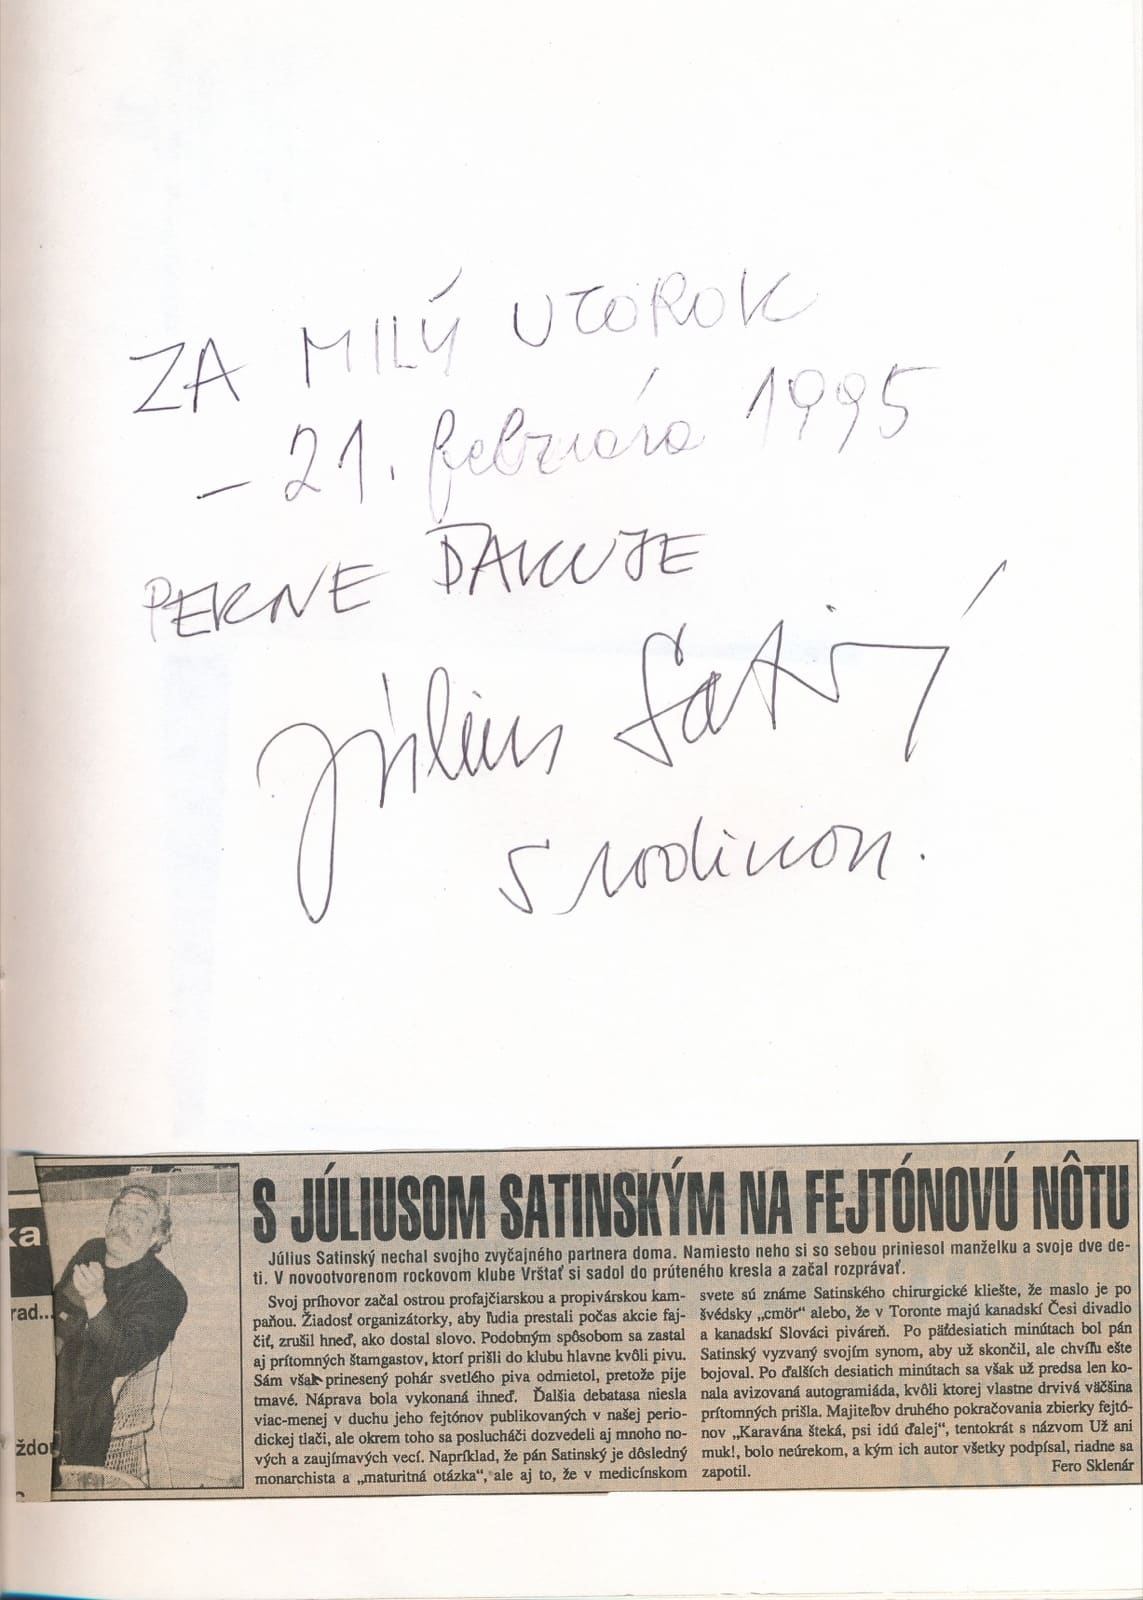 ZA MILÝ UTOROK
– 21. februára 1995
PEKNE ĎAKUJE
Július Sati
s rodinou.
S JÚLIUSOM SATINSKÝM NA FEJTÓNOVÚ NÔTU
Július Satinský nechal svojho zvyčajného partnera doma. Namiesto neho si so sebou priniesol manželku a svoje dve de-
ti. V novootvorenom rockovom klube Vŕštať si sadol do prúteného kresla a začal rozprávať.
Svoj príhovor začal ostrou profajčiarskou a propivárskou kam-
paňou. Žiadosť organizátorky, aby ľudia prestali počas akcie faj-
čiť, zrušil hneď, ako dostal slovo. Podobným spôsobom sa zastal
aj prítomných štamgastov, ktorí prišli do klubu hlavne kvôli pivu.
Sám však prinesený pohár svetlého piva odmietol, pretože pije
tmavé. Náprava bola vykonaná ihneď. Ďalšia debatasa niesla
viac-menej v duchu jeho fejtónov publikovaných v našej perio-
dickej tlači, ale okrem toho sa poslucháči dozvedeli aj mnoho no-
vých a zaujímavých vecí. Napríklad, že pán Satinský je dôsledný
monarchista a „maturitná otázka“, ale aj to, že v medicínskom
svete sú známe Satinského chirurgické kliešte, že maslo je po
švédsky „cmör“ alebo, že v Toronte majú kanadskí Česi divadlo
a kanadskí Slováci piváreň. Po päťdesiatich minútach bol pán
Satinský vyzvaný svojím synom, aby už skončil, ale chvíľu ešte
bojoval. Po ďalších desiatich minútach sa však už predsa len ko-
nala avizovaná autogramiáda, kvôli ktorej vlastne drvivá väčšina
prítomných prišla. Majiteľov druhého pokračovania zbierky fejtó-
nov „Karavána šteká, psi idú ďalej“, tentokrát s názvom Už ani
muk!, bolo neúrekom, a kým ich autor všetky podpísal, riadne sa
zapotil.
Fero Sklenár
ka
rad...
ždo